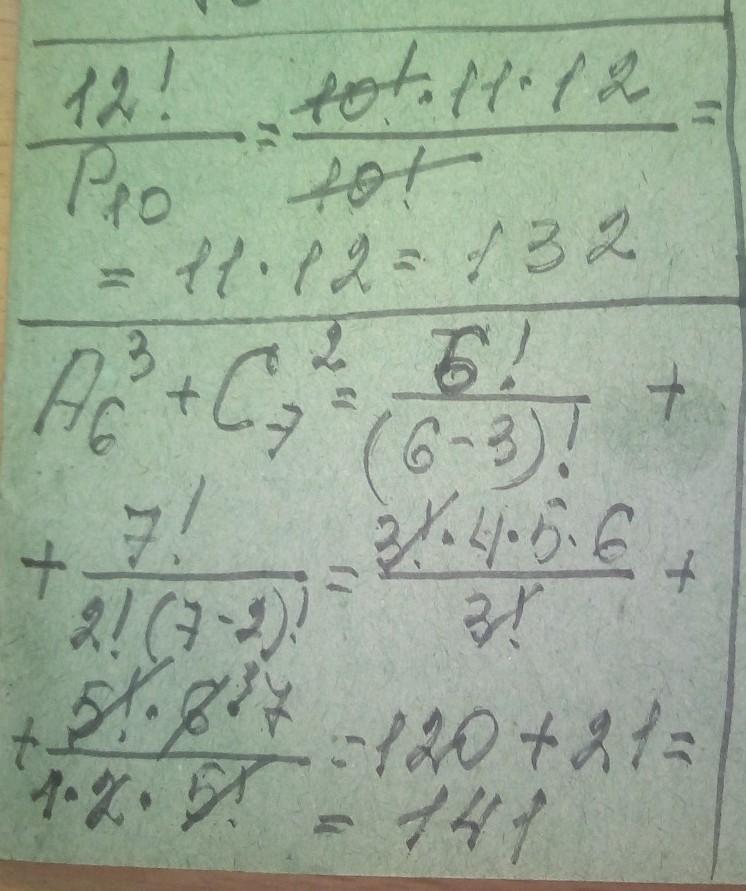 12! / P₁₀ = 10! · 11 · 12 / 10! =
= 11 · 12 = 132
A₆³ + C₇² = 6! / (6-3)! +
+ 7! / 2! (7-2)! = 3! · 4 · 5 · 6 / 3! +
+ 5! · 6 ³ 7 / 1 · 2 · 5! = 120 + 21 =
= 141